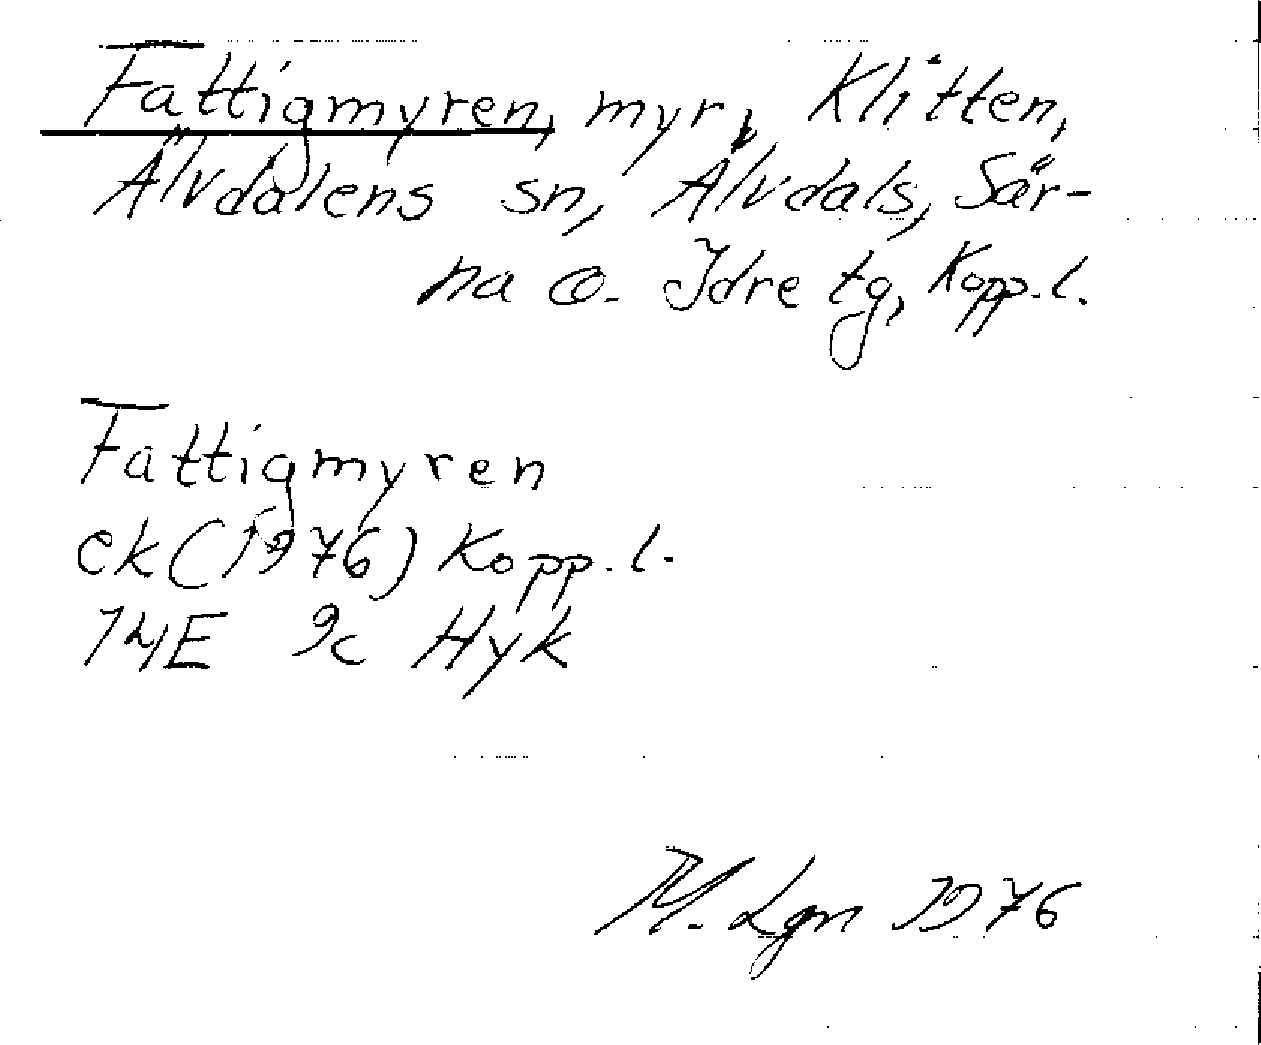 Fattigmyren, myr, Klitten,
Älvdalens sn, Älvdals, Sär-
na o. Idre tg, Kopp. l.
Fattigmyren
ek (1976) Kopp. l.
14E 9c Hyk
M. Lgn 1976